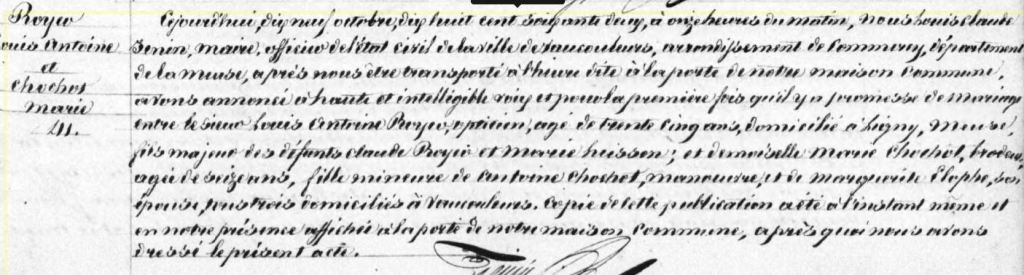 Royer
Louis Antoine
et
Chochot
Marie
41.
Cejourd'hui, dix neuf octobre, dix huit cent soixante deux, à onze heures du matin, Nous Louis Claude
Génin, maire, officier de l'état civil de la ville de Vaucouleurs, arrondissement de Commercy, département
de la Meuse, après nous être transporté à l'heure dite à la porte de notre maison commune,
avons annoncé à haute et intelligible voix et pour la première fois qu'il y a promesse de mariage
entre le sieur Louis Antoine Royer, opticien, agé de trente cinq ans, domicilié à Ligny, Meuse,
fils majeur des défunts Claude Royer et Marie husson; et demoiselle Marie Chochot, brodeuse
agée de seize ans, fille mineure de Antoine Chochot, manoeuvre, et de Marguerite Elophe, son
épouse, tous trois domiciliés à Vaucouleurs. Copie de cette publication a été à l'instant même et
en notre présence affichée à la porte de notre maison commune, après quoi nous avons
dressé le présent acte.
Génin